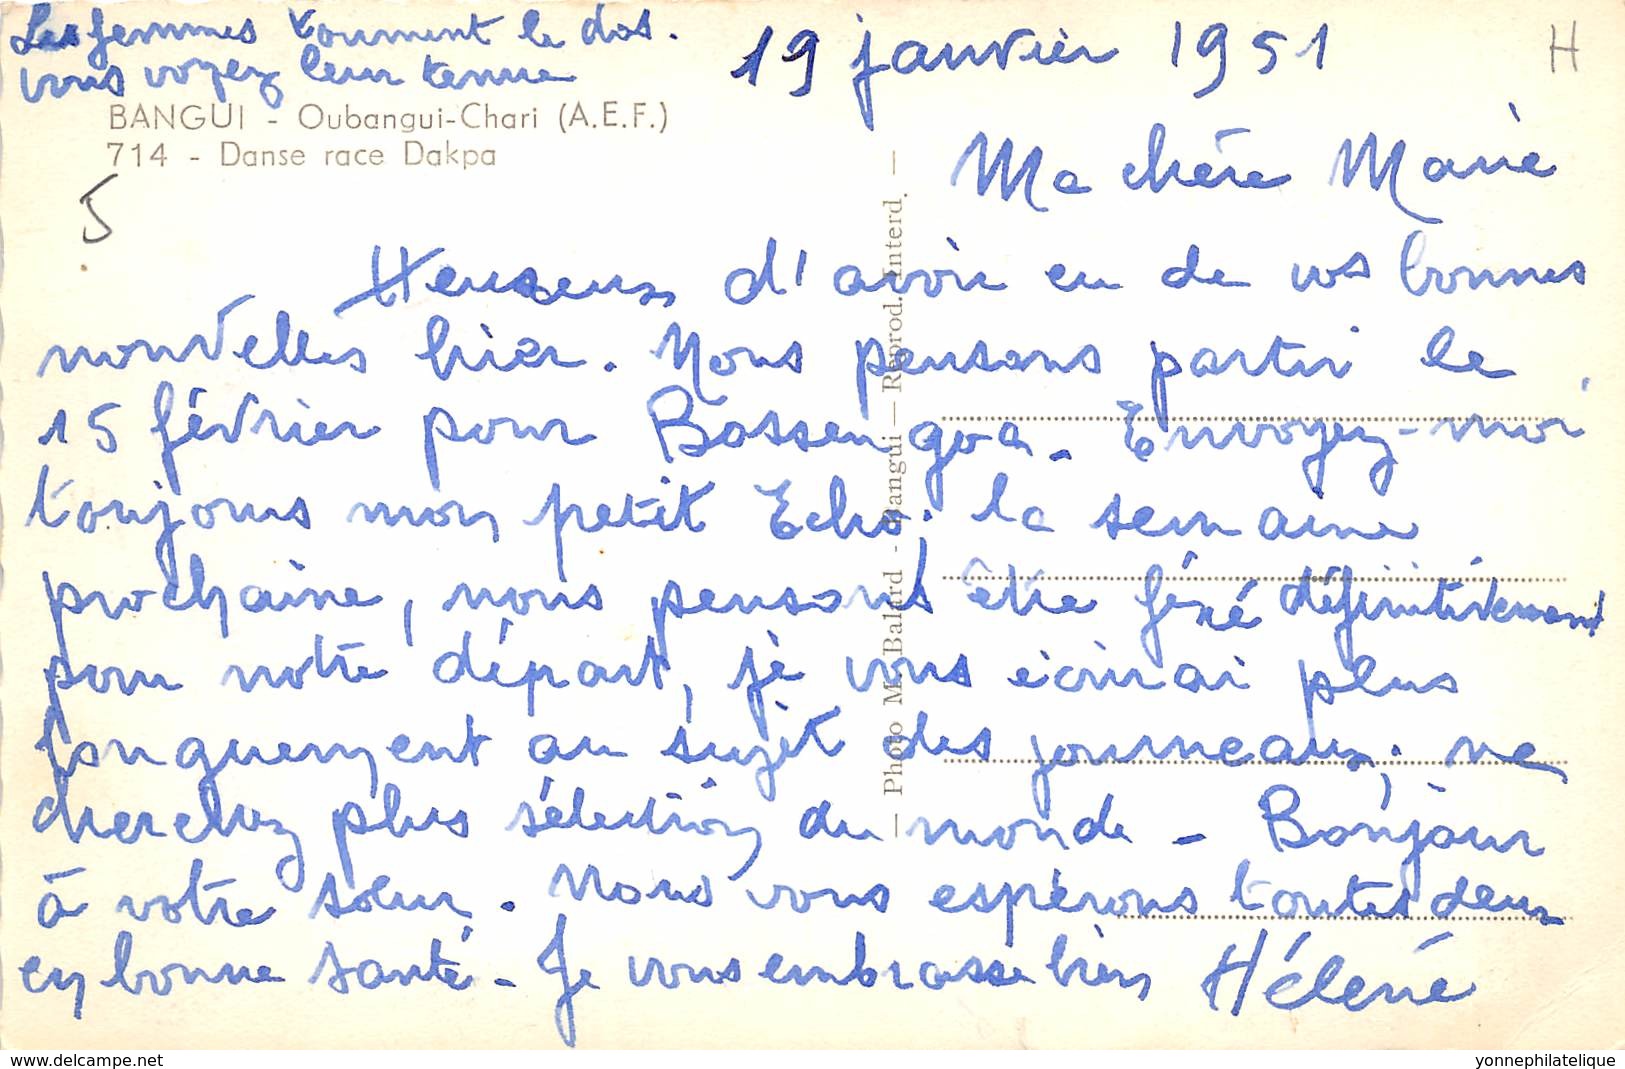 Les femmes tournent le dos.
vous voyez leur tenue
19 janvier 1951
H
BANGUI - Oubangui-Chari (A.E.F.)
714 - Danse race Dakpa
5
Ma chère Marie
Heureuse d'avoir eu de vos bonnes
nouvelles hier. Nous pensons partir le
15 février pour Bossengoa. Envoyez-moi
toujours mon petit Echo. la semaine
prochaine, nous pensons être fixé définitivement
pour notre départ, je vous écrirai plus
longuement au sujet des journeaux, ne
cherchez plus sélection du monde - Bonjour
à votre sœur. Nous vous espérons toutes deux
en bonne santé - Je vous embrasse bien Hélène
— Photo M. Balard - Bangui — Reprod. Interd. —
delcampe.net
yonnephilatelique